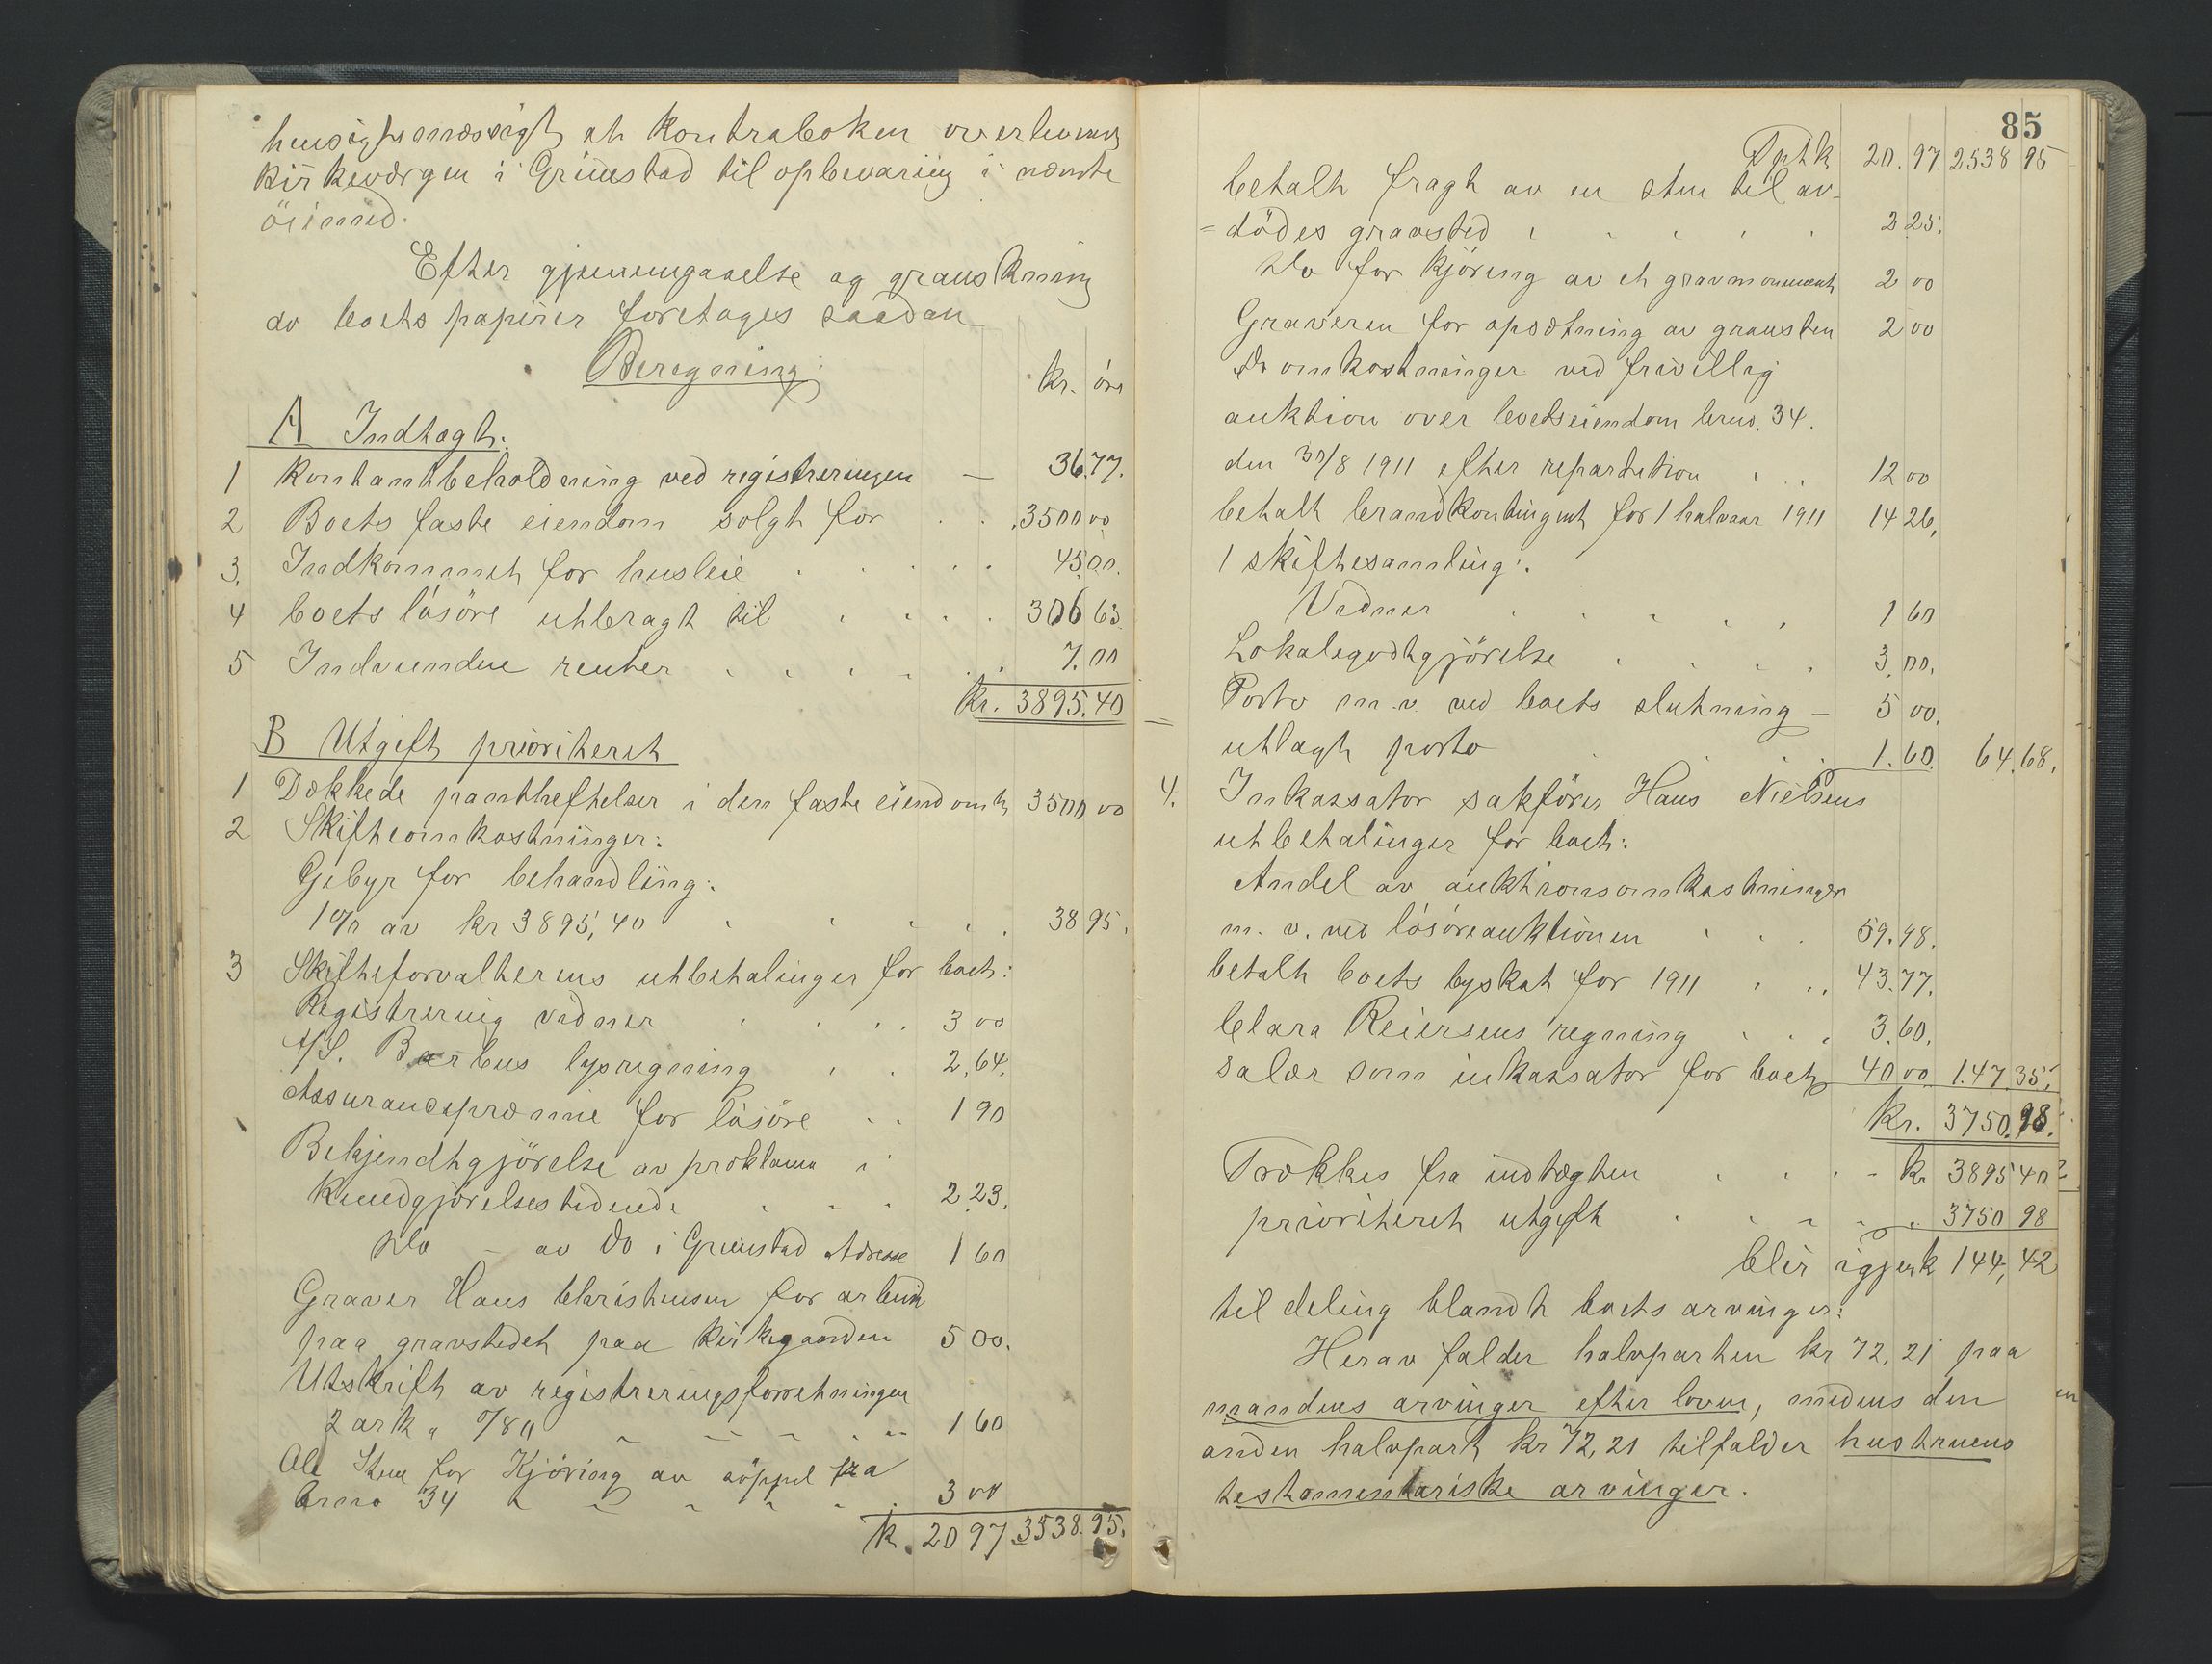 hensigtsmæssigt at kontraboken overleveres
kirkeværgen i Grimstad til opbevaring i nævnte
öiemed.
Efter gjennemgaaelse og granskning
av boets papirer foretages saadan
Beregning:
kr. öre
A Indtægt:
1 Kontantbeholdning ved registreringen — 36.77.
2 Boets faste eiendom solgt for . . . 3500 00
3. Indkommet for husleie . . . . . 45.00.
4 boets lösöre utbragt til . . . . 306 63
5 Indvundne renter . . . . . . 7.00
Kr. 3895.40
B Utgift prioritert
1 Dækkede pantheftelser i den faste eiendomh 3500 00
2 Skifteomkostninger:
Gebyr for behandling:
1% av kr 3895,40 . . . . . 38 95.
3 Skifteforvalterens utbetalinger for boet:
Registrering vidner . . . . 3 00
A/S. Bærbus lysregning . . 2,64.
Assurancepræmie for lösöre . . 1 90
Bekjendtgjörelse av proklama i
Kundgjörelsestidende . . . 2 23.
Do – av Do i Grimstad Adresse 1 60
Graver Hans Christensen for arbeide
paa gravstedet paa kirkegaarden 5 00.
Utskrift av registreringsforretningen
2 ark a 0/80 – – – . .. 1 60
Ole Stene for Kjöring av söppel fra
brno 34 – – – – . 3 00
k. 20 97 3538.95.
85
Tphk 20.97. 2538 95
betalt fragt av en sten til av-
= dödes gravsted . . . . . 2 25.
Do for kjöring av et gravmonument 2 00
Graveren for opsætning av gravsten 2 00
Do omkostninger ved frivillig
auktion over boets eiendom brno. 34.
den 30/8 1911 efter repartition . . . 12 00
betalt brandkontingent for 1 halvaar 1911 14 26,
1 skiftesamling:
Vidner . . . . . 1 60
Lokalegodtgjörelse . . . . 3,00.
Porto m.v. ved boets slutning – 5 00.
utlagt porto . . . . 1.60. 64.68.
4. Inkassator sakförer Hans Nielsens
utbetalinger for boet:
Andel av auktionsomkostninger
m. v. ved lösöreauktionen . . . 59.98.
betalt boets byskat for 1911 . . . 43.77.
Clara Reiersens regning . . . 3.60.
Salær som inkassator for boet 40 00 1.47.35.
Kr. 3750.98.
Trækkes fra indtægten . . . - kr 3895 40
prioriteret utgift . . – . . 3750 98
blir igjen k 144,42
til deling blandt boets arvinger:
Herav falder halvparten kr 72,21 paa
mandens arvinger efter loven, medens den
anden halvpart kr 72,21 tilfalder hustruens
testamentariske arvinger.